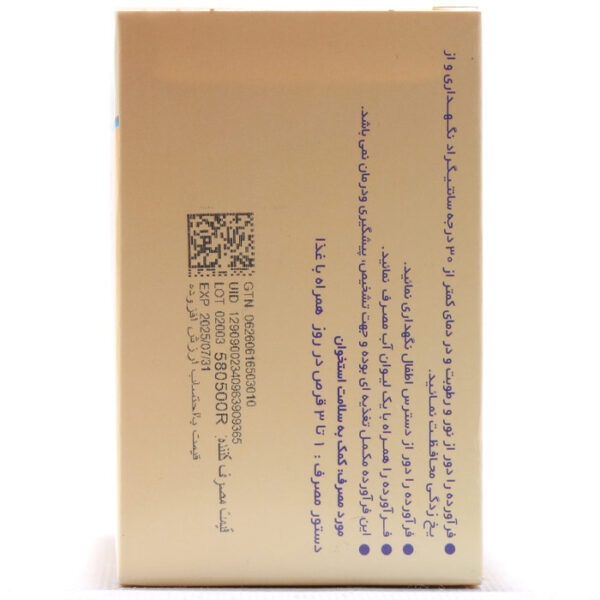 ● فرآورده را دور از نور و رطوبت و در دمای کمتر از ۳۰ درجه سانتیگراد نگهداری و از
یخ زدگی محافظت نمائید.
● فرآورده را دور از دسترس اطفال نگهداری نمائید.
● فرآورده را همراه با یک لیوان آب مصرف نمائید.
● این فرآورده مکمل تغذیه ای بوده و جهت تشخیص، پیشگیری ودرمان نمی باشد.
مورد مصرف: کمک به سلامت استخوان
دستور مصرف: ۱ تا ۳ قرص در روز همراه با غذا
GTN 06260616503010
UID 12909002340963909365
LOT 02003
EXP 2025/07/31
قیمت مصرف کننده: 580500R
قیمت بااحتساب ارزش افزوده